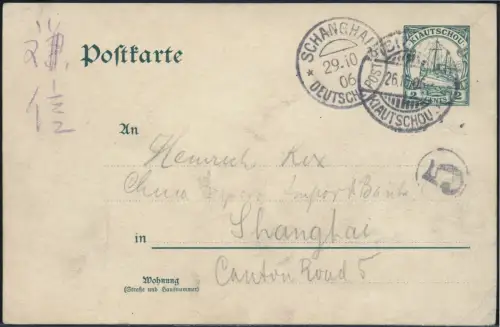 Postkarte
KIAUTSCHOU
2 CENTS 2
SCHANGHAI
29.10
06
* DEUTSCHE
26.10.06
KIAUTSCHOU
An
Heinrich Rex
China Export Import & Bank
Shanghai
in
Canton Road 5
Wohnung
(Straße und Hausnummer)